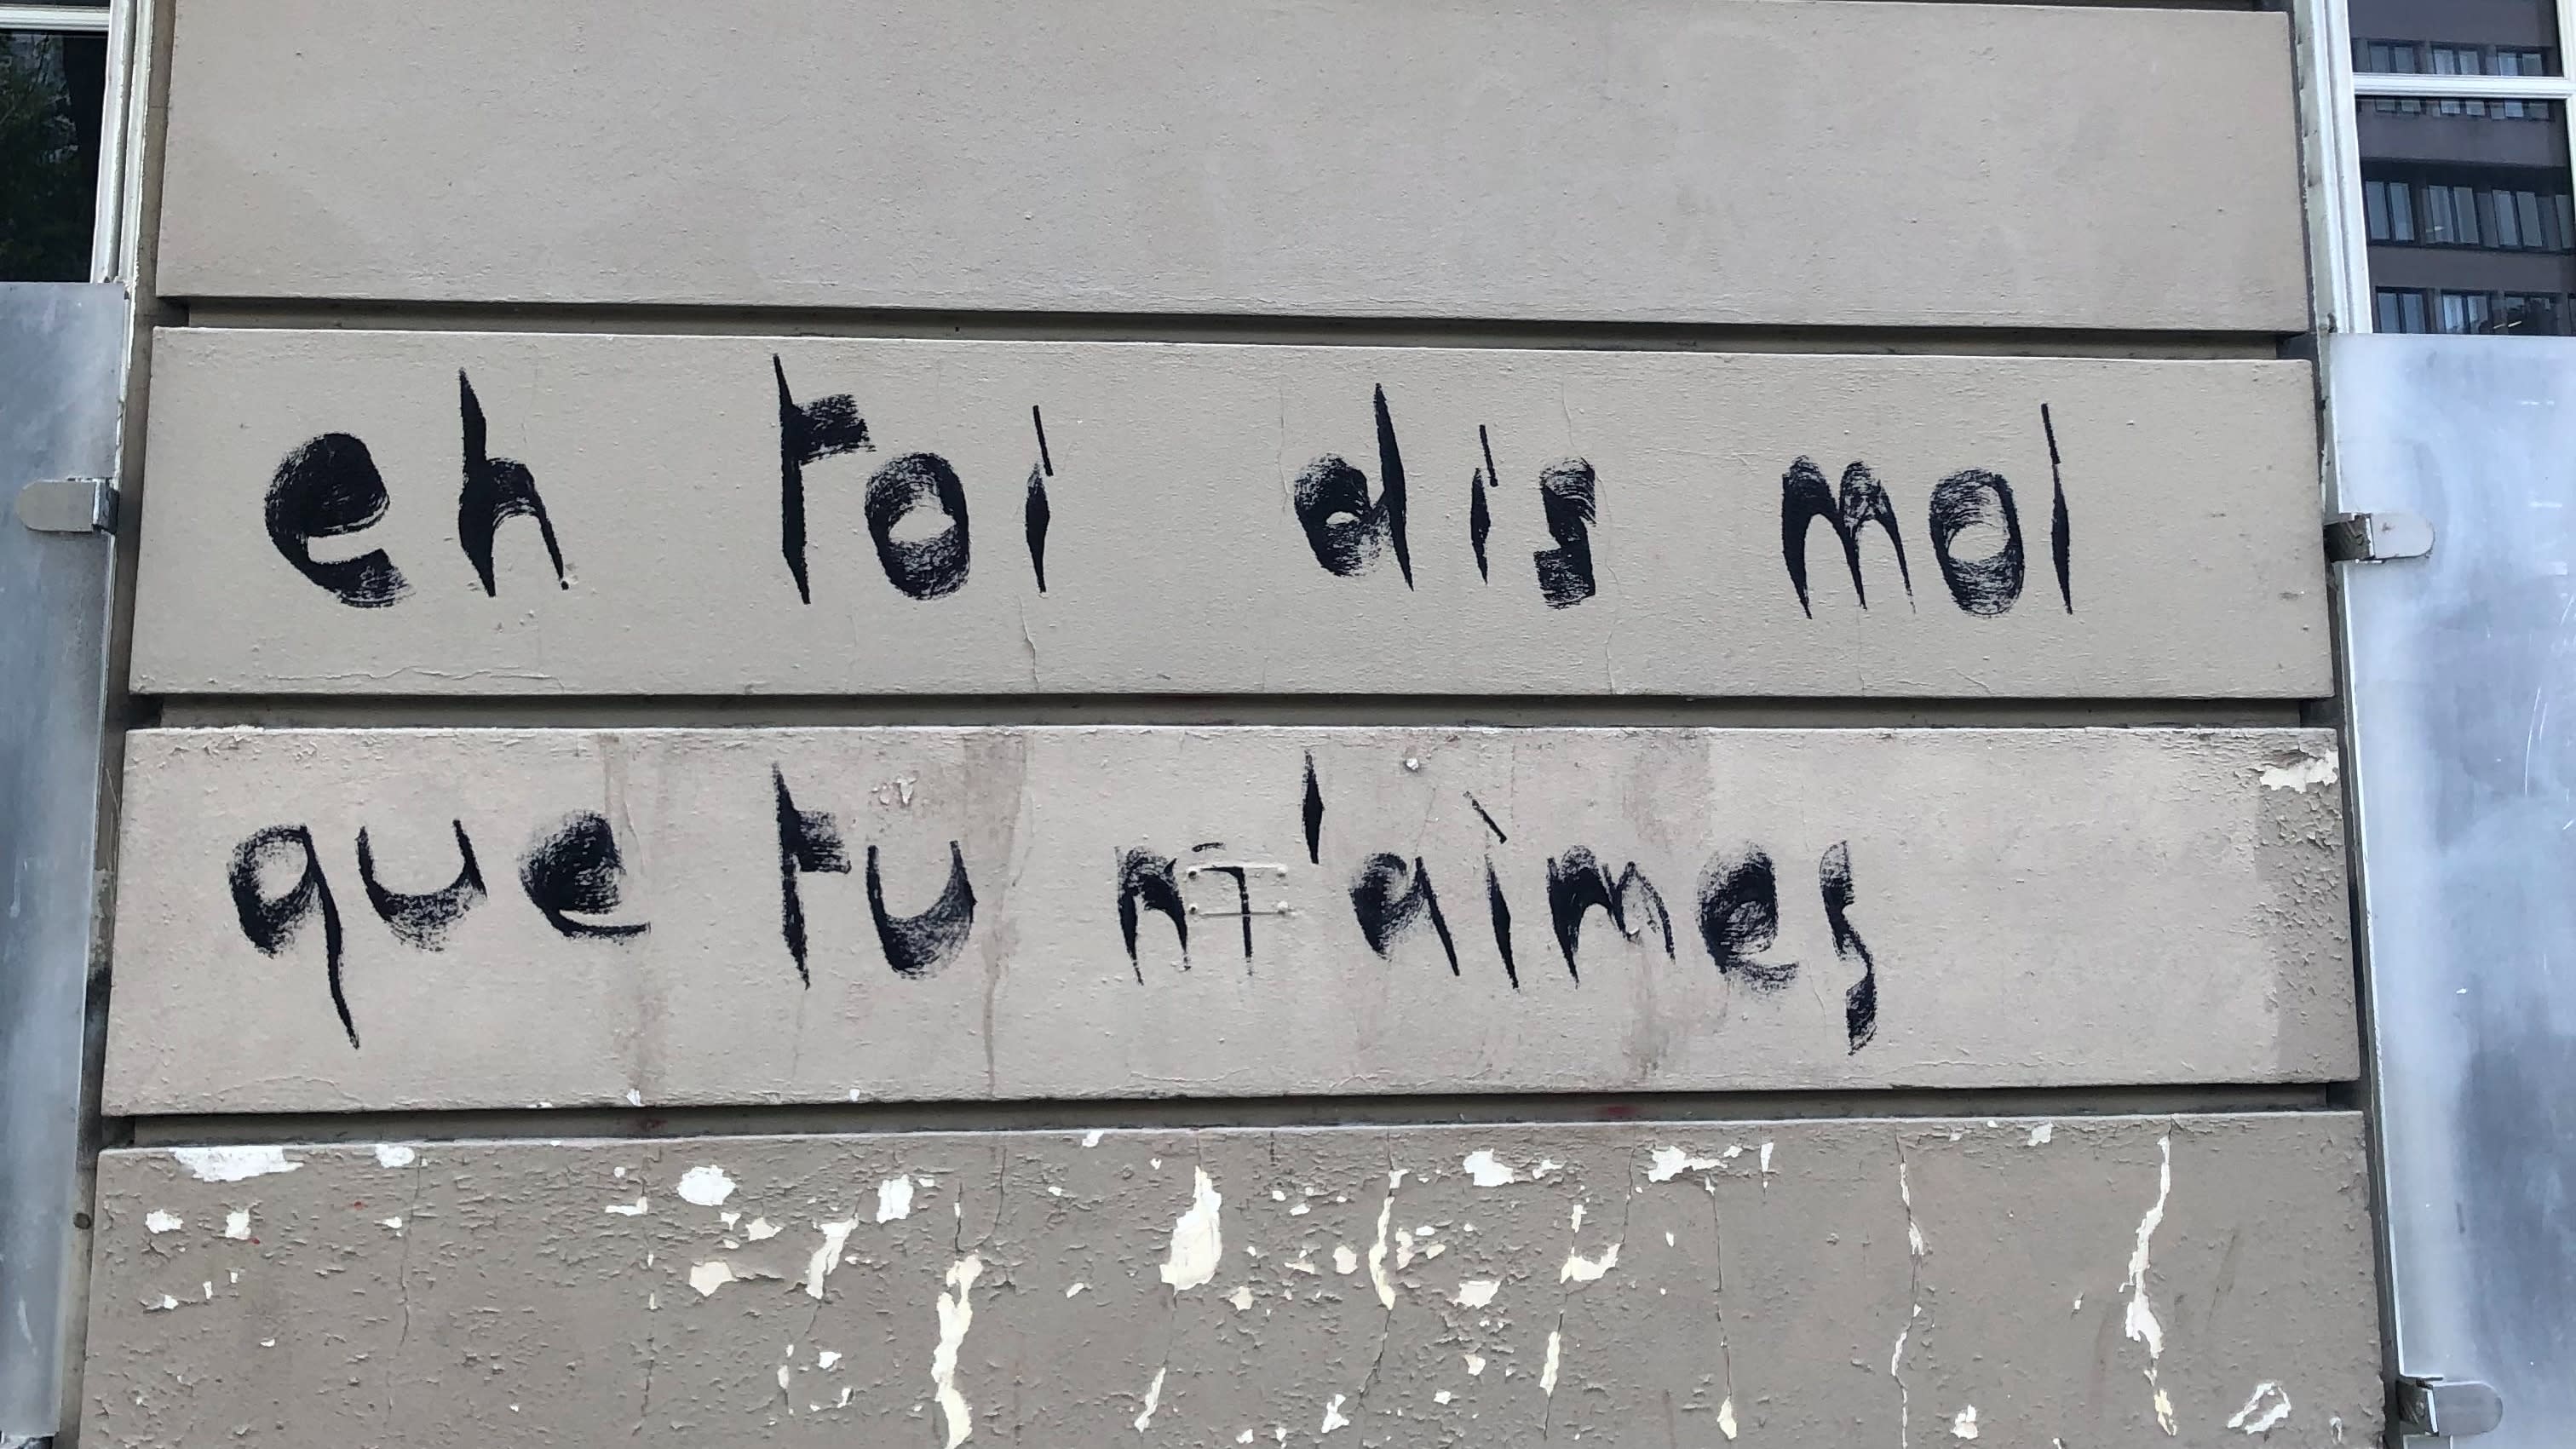 eh toi dis moi
que tu m'aimes